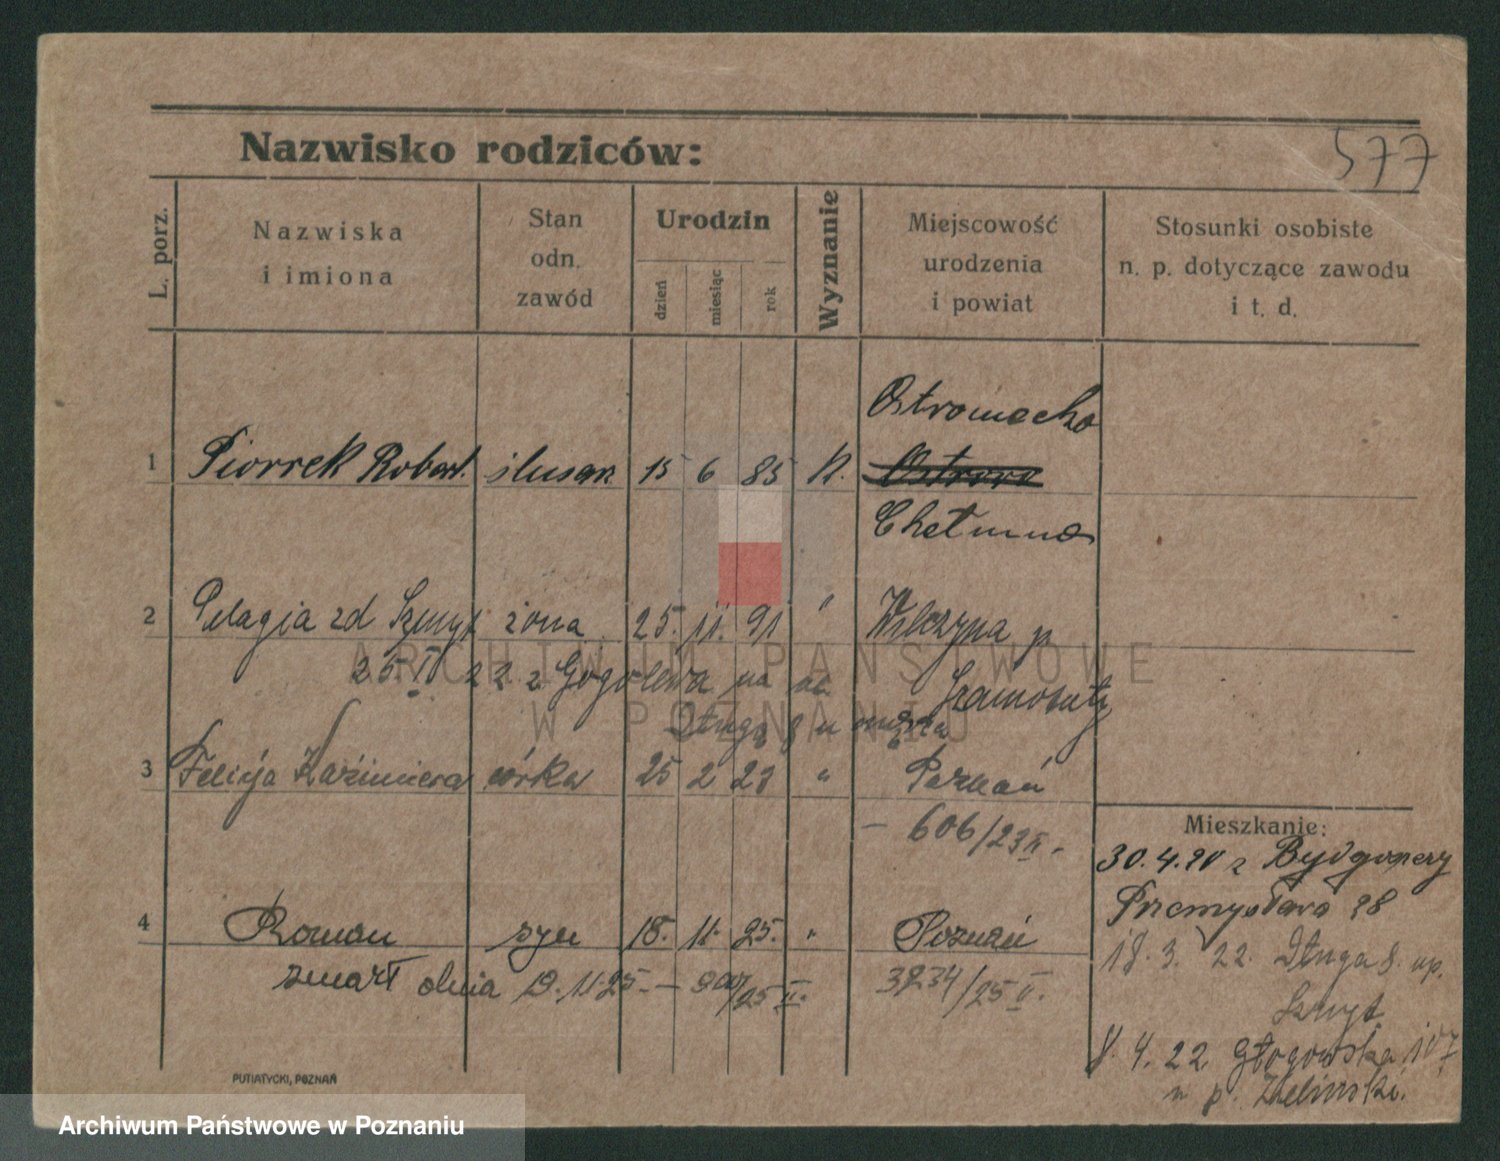 577
Nazwisko rodziców:
L. porz.
Nazwiska
i imiona
Stan
odn.
zawód
Urodzin
dzień
miesiąc
rok
Wyznanie
Miejscowość
urodzenia
i powiat
Stosunki osobiste
n. p. dotyczące zawodu
i t. d.
Ostromecko
1 Piorrek Robert. ślusarz 15 6 85 K. Ostrowo
Chełmno
2 Pelagja zd Szmyt żona 25. 11. 91 " Wilczyna p
25 IV 22 z Gogolewa na Szamotuły
Długą 8 u męża
3 Felicja Kazimiera córka 25 2 23 " Poznań
– 606/23 II.
Mieszkanie:
30.4.20 z Bydgoszczy
Przemysława 28
4 Roman syn 18. 11. 25. " Poznań
18. 3. 22. Długa 8. up.
zmarł dnia 19.11.25 — /25 II. 3234/25 II.
Szmyt
8. 4. 22. Głogowska 107
u p. Zieliński.
PUTIATYCKI, POZNAŃ
ARCHIWUM PAŃSTWOWE
W POZNANIU
Archiwum Państwowe w Poznaniu